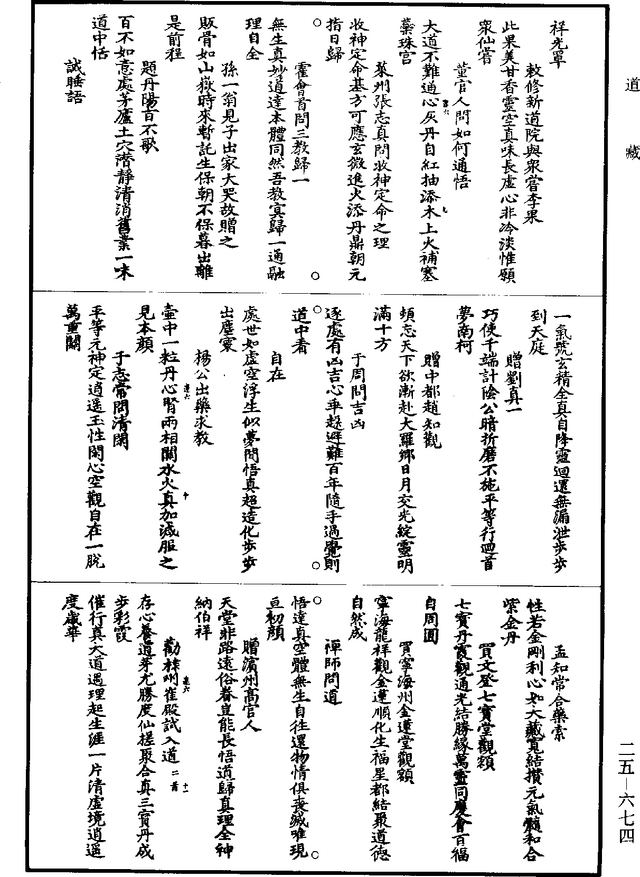 道藏
祥光罩
敕修新道院與衆嘗李果
此果美甘香靈空真味長虛心非冷淡惟願
衆仙嘗
董官人問如何通悟
大道不難通心灰丹自紅抽添木上火補塞
蘂珠宫
萊州張志真問收神定命之理
收神定命基方可應玄微進火添丹鼎朝元
指日歸
霍會首問三教歸一
無生真妙道達本體同然吾教冥歸一通融
理自全
孫一翁見子出家大哭故贈之
販骨如山嶽時來暫託生保朝不保暮出離
是前程
題丹陽百不歌
百不如意處茅廬土穴潛靜清消舊業一味
道中恬
誡睡語
一氣號玄精全真自降靈迴還無漏泄步步
到天庭
贈劉真一
巧使千端計陰公暗折磨不施平等行迴首
夢南柯
贈中都趙知觀
頓忘天下欲漸赴大羅鄉日月交光綻靈明
滿十方
于周問吉凶
逐處有凶吉心乖趍避難百年隨手過覺則
道中看
自在
處世如虛空浮生似夢間悟真超造化步步
出塵寰
楊公出藥求教
壷中一粒丹心腎兩相關水火真加減服之
見本顔
于志常問清閑
平等元神定逍遥玉性閑心空觀自在一脱
萬重關
孟知常合藥索
性若金剛利心如大藏寬結攢元氣髓和合
紫金丹
買文登七寶堂觀額
七寶丹霞觀通光結勝緣萬靈同慶會百福
自周圓
買寧海州金蓮堂觀額
寧海龍祥觀金蓮順化生福星都結聚道德
自然成
禪師問道
悟達真空體無生自往還物情俱喪滅唯現
亘初顔
贈濱州高官人
天堂非路遠俗眷豈能長悟道歸真理全神
納伯祥
勸棣州崔殿試入道二首
存心養道芽尤勝度仙槎聚合真三寳丹成
步彩霞
催行真大道遇理起生涯一片清虛境逍遥
度歲華
二五—六七四